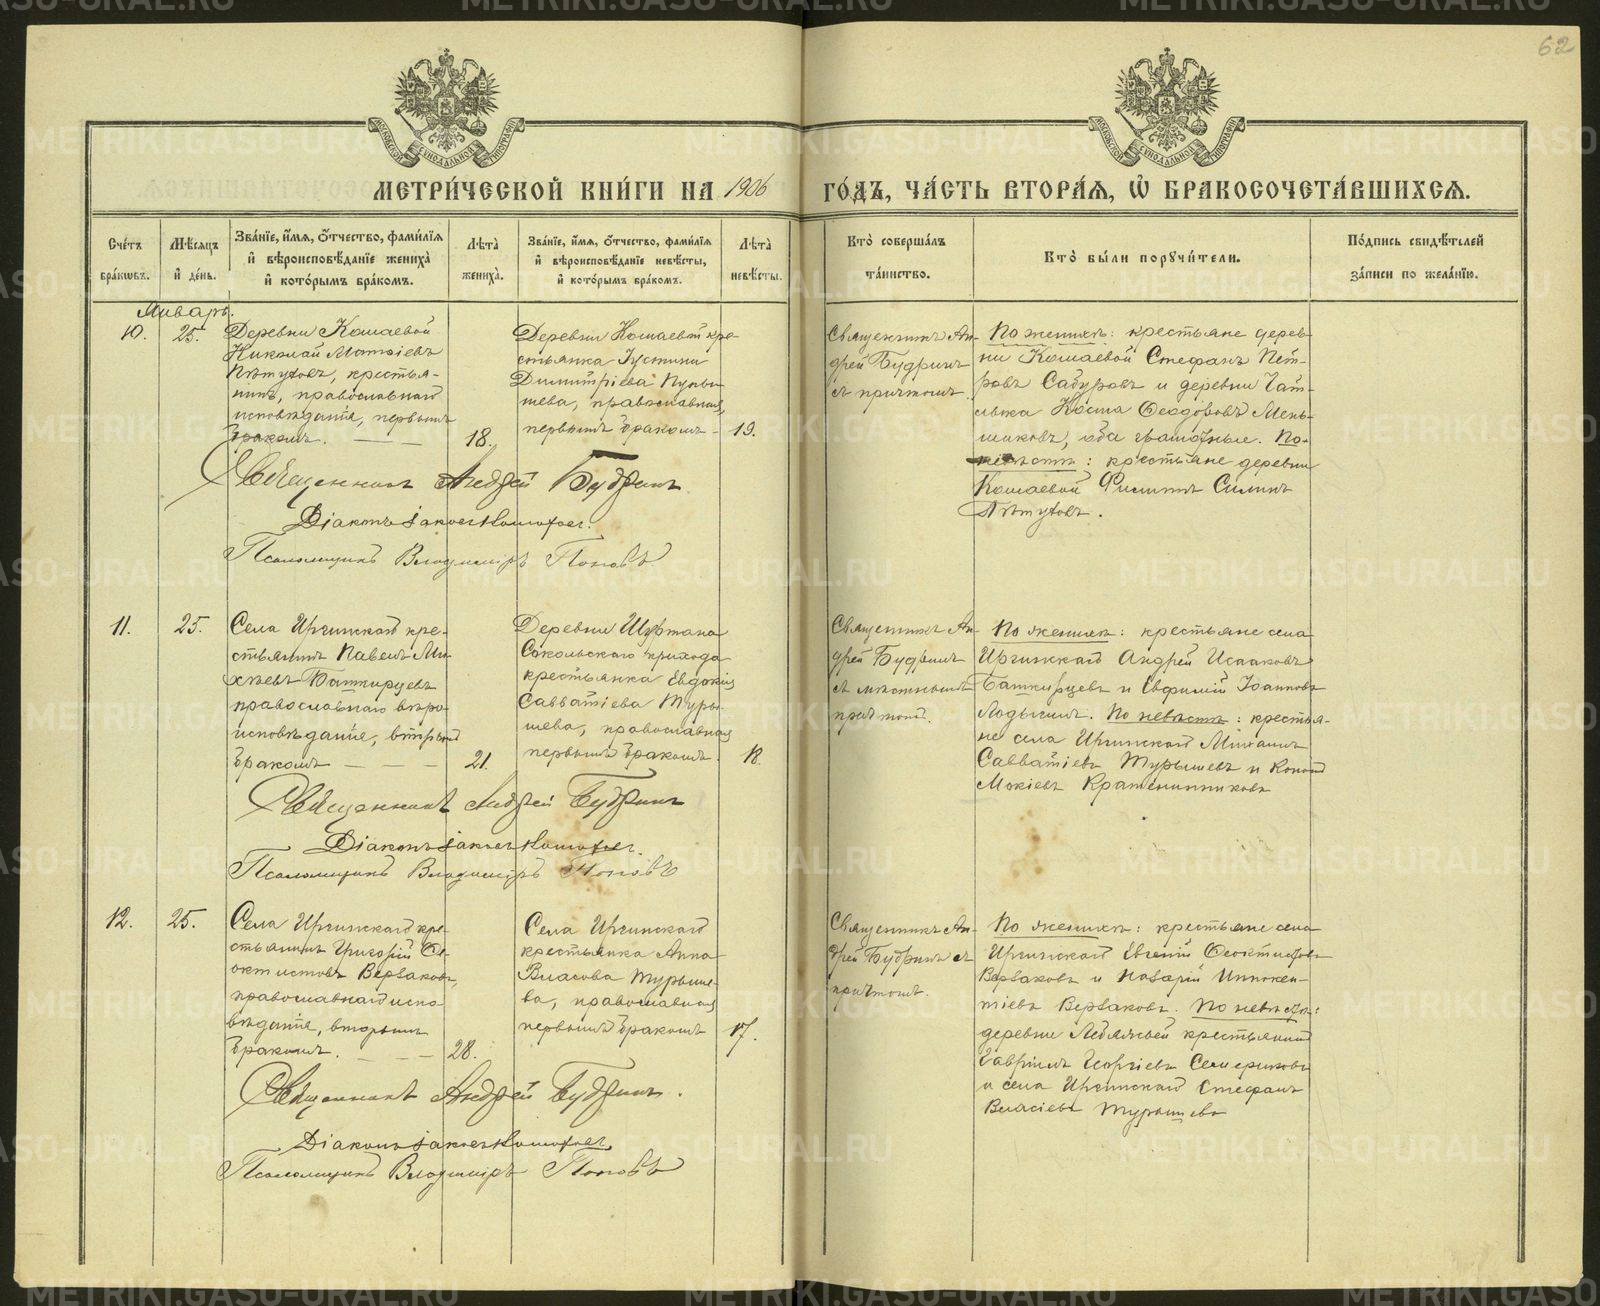 62
МЕТРИ́ЧЕСКОЙ КНИ́ГИ НА 1906
ГО́ДЪ, ЧА́СТЬ ВТОРА́Я, Ѡ҆ БРАКОСОЧЕТА́ВШИХСЯ.
Сче́тъ бра́ковъ.
Мѣ́сяцъ и҆ де́нь.
Зва́нїе, и҆́мя, ѻ҆́тчество, фами́лїя
и҆ вѣроисповѣ́данїе жениха̀
и҆ кото́рымъ бра́комъ.
Лѣ́та жениха̀.
Зва́нїе, и҆́мя, ѻ҆́тчество, фами́лїя
и҆ вѣроисповѣ́данїе невѣ́сты,
и҆ кото́рымъ бра́комъ.
Лѣ́та невѣ́сты.
Кто̀ соверша́лъ
та́инство.
Кто̀ бы́ли порꙋчи́тели.
По́дпись свидѣ́телей
за́писи по жела́нїю.
Январь.
10.
25.
Деревни Кошаевой
Николай Матѳіевъ
Пѣтуховъ, крестья-
нинъ, православнаго
исповѣданія, первымъ
бракомъ.
18.
Деревни Кошаевой кре-
стьянка Іустина
Димитріева
православная,
первымъ бракомъ
19.
Священникъ Ан-
дрей Будринъ
съ причтомъ.
По женихѣ: крестьяне дерев-
ни Кошаевой Стефанъ Пет-
ровъ Сабуровъ и деревни
Косма Ѳеодоровъ Мень-
шиковъ, оба грамотные. По
невѣстѣ: крестьяне деревни
Кошаевой Филиппъ Силинъ
Пѣтуховъ.
Священникъ Андрей Будринъ
Діаконъ Іаковъ
Псаломщикъ Владиміръ Поповъ
11.
25.
Села Иргинскаго кре-
стьянинъ Павелъ Ми-
хѣевъ Башкирцевъ
православнаго вѣро-
исповѣданія, вторымъ
бракомъ
21.
Деревни Шуртана
Сокольскаго прихода
крестьянка Евдокія
Савватіева Туры-
шева, православная
первымъ бракомъ.
18.
Священникъ Ан-
дрей Будринъ
съ мѣстнымъ
причтомъ.
По женихѣ: крестьяне села
Иргинскаго Андрей Исааковъ
Башкирцевъ и Евфимій Іоанновъ
Лодыгинъ. По невѣстѣ: крестья-
не села Иргинскаго Михаилъ
Савватіевъ Турышевъ и Кононъ
Мокіевъ Крашенинниковъ
Священникъ Андрей Будринъ
Діаконъ Іаковъ
Псаломщикъ Владиміръ Поповъ
12.
25.
Села Иргинскаго кре-
стьянинъ Григорій Ѳе-
октистовъ Верзаковъ,
православнаго испо-
вѣданія, вторымъ
бракомъ.
28.
Села Иргинскаго
крестьянка Анна
Власова Турыше-
ва, православная
первымъ бракомъ
17.
Священникъ Ан-
дрей Будринъ съ
причтомъ.
По женихѣ: крестьяне села
Иргинскаго Евгеній Ѳеоктистовъ
Верзаковъ и Назарій Иннокен-
тіевъ Верзаковъ. По невѣстѣ:
деревни Лебяжьей крестьянинъ
Гавріилъ Георгіевъ Семериковъ
и села Иргинскаго Стефанъ
Власіевъ Турышевъ
Священникъ Андрей Будринъ.
Діаконъ Іаковъ
Псаломщикъ Владиміръ Поповъ
METRIKI.GASO-URAL.RU